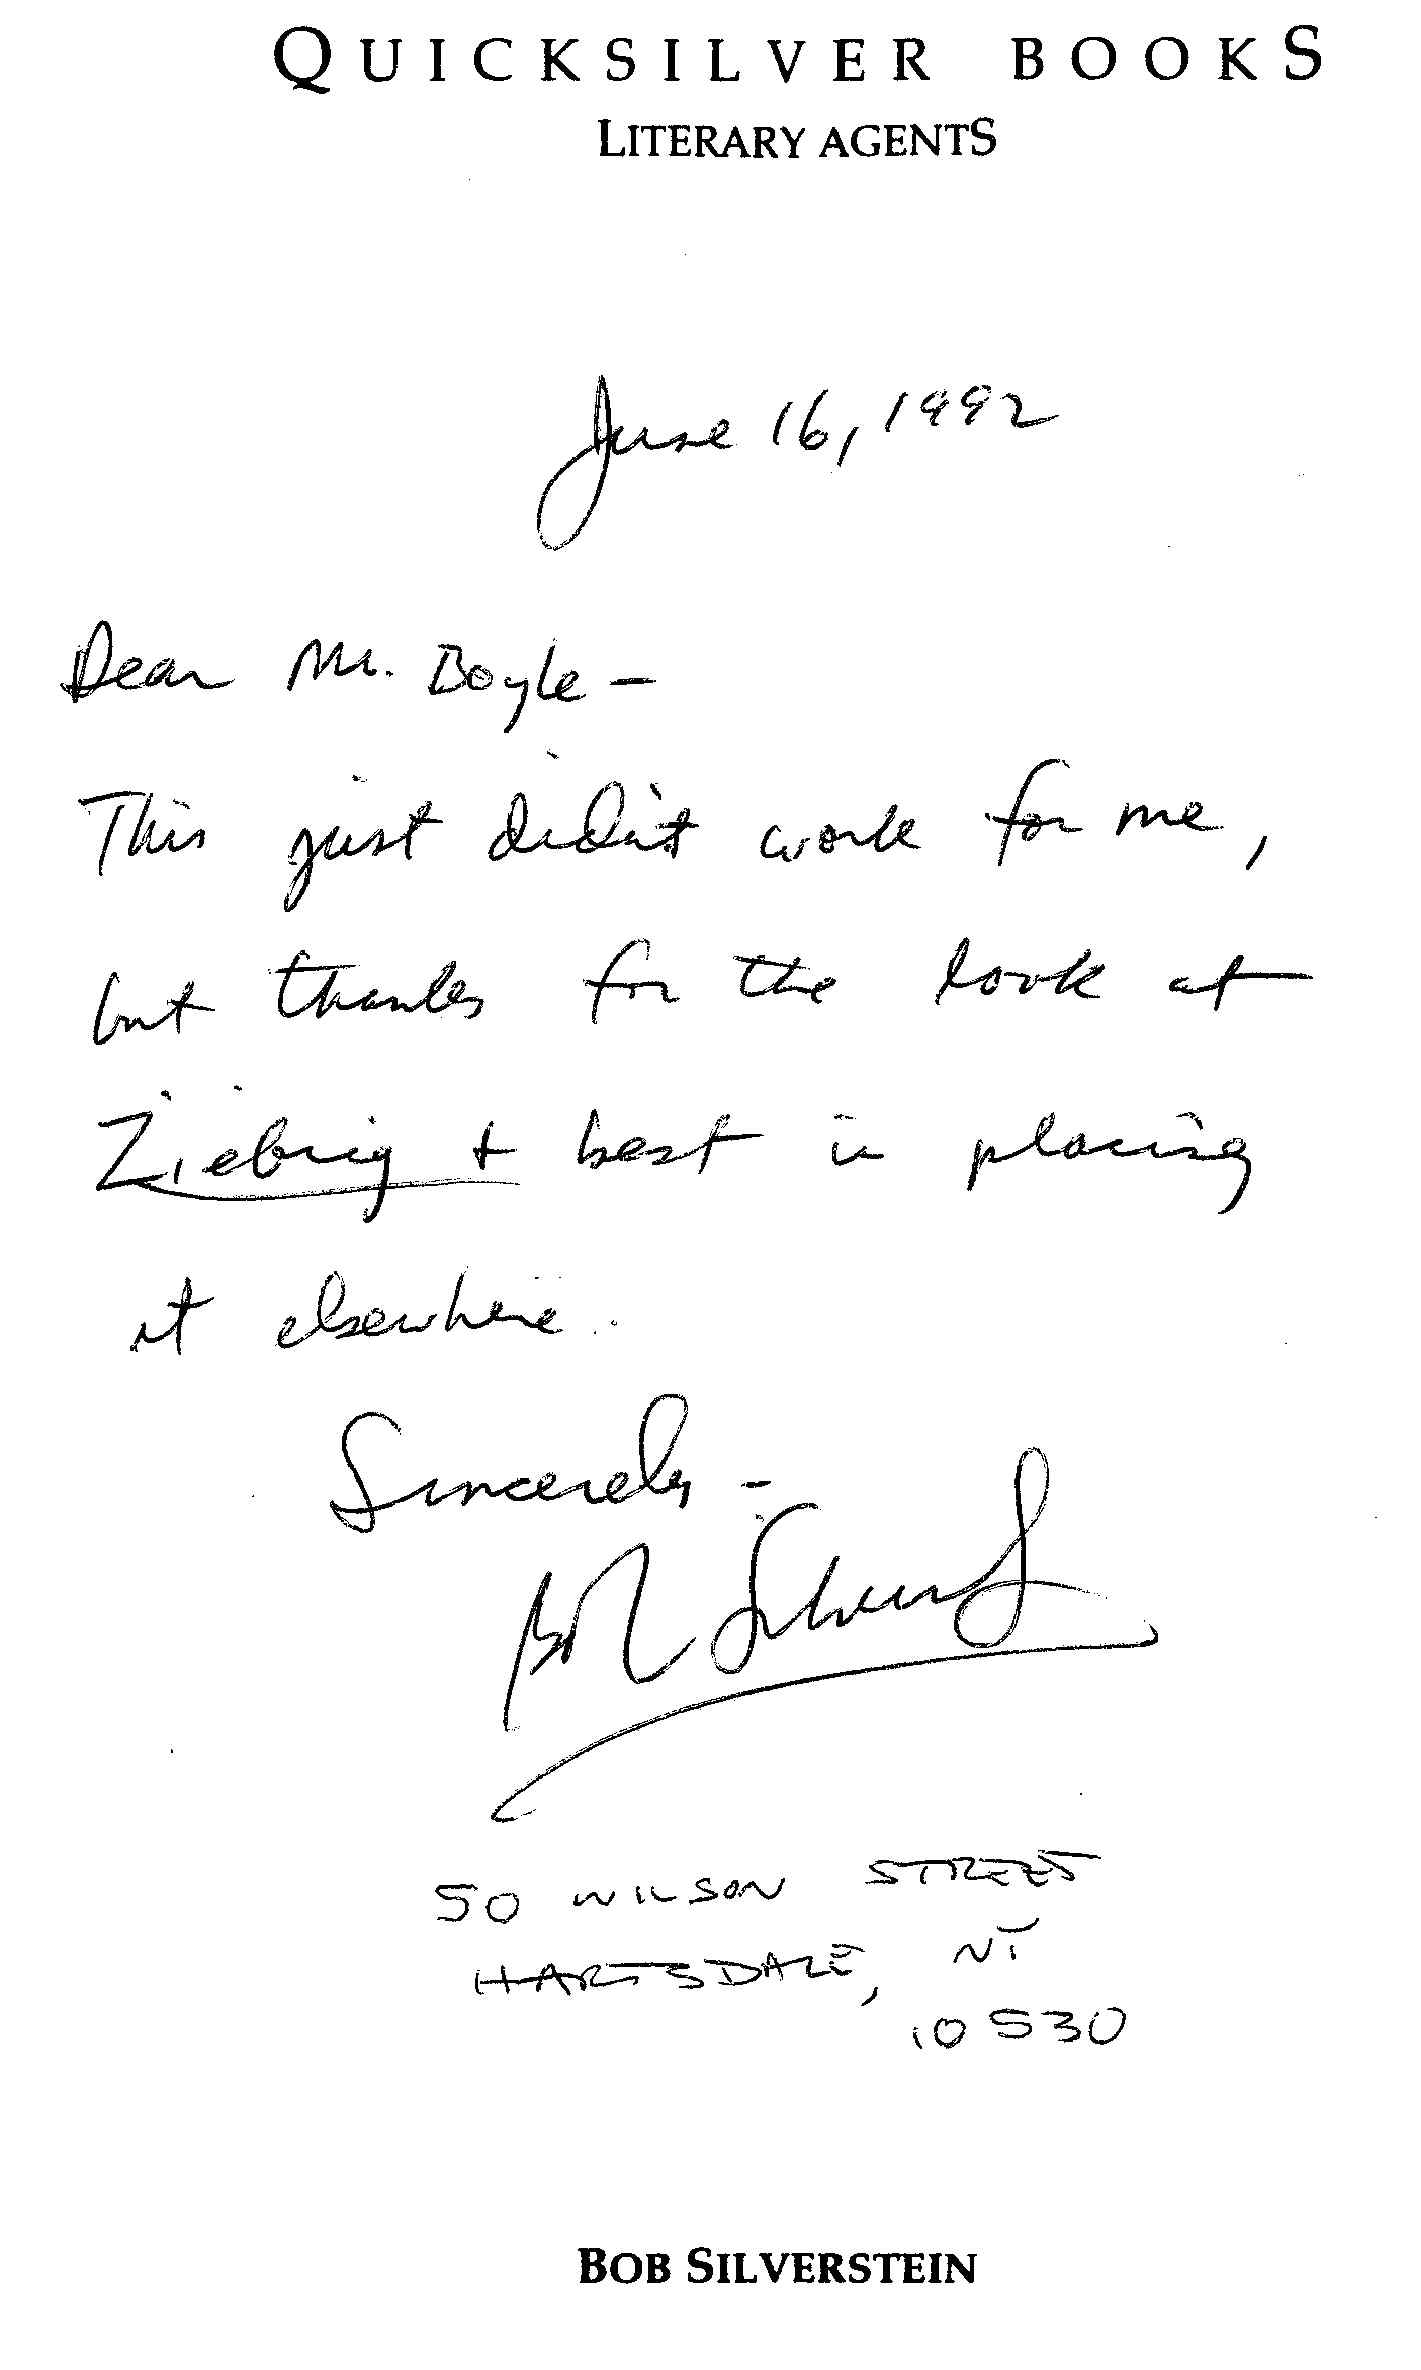 QUICKSILVER BOOKS
LITERARY AGENTS
June 16, 1992
Dear Mr. Boyle –
This just didn't work for me,
but thanks for the look at
Ziebrig + best in placing
it elsewhere.
Sincerely –
Bob Silverstein
50 WILSON STREET
HARTSDALE, NY
10530
BOB SILVERSTEIN